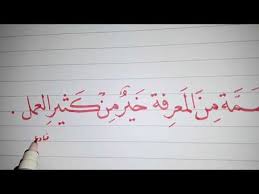 مِنَ الْمَعرِفة خَيرٌ مِنْ كَثيرِ العمل .